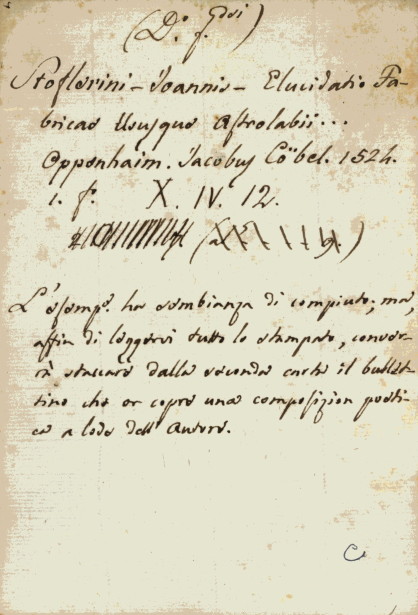 (D.º f. Gdi)
Stoflerini - Joannis - Elucidatio Fa-
bricae Ususque Astrolabii...
Oppenhaim. Jacobus Cöbel. 1524.
1. fº. X. IV. 12.
L'esempº. ha sembianza di compiuto; ma,
affin di leggervi tutto lo stampato, conver-
rà staccare dalla seconda carta il bullet-
tino che or copre una composizion poeti-
ca a lode dell' Autore.
C